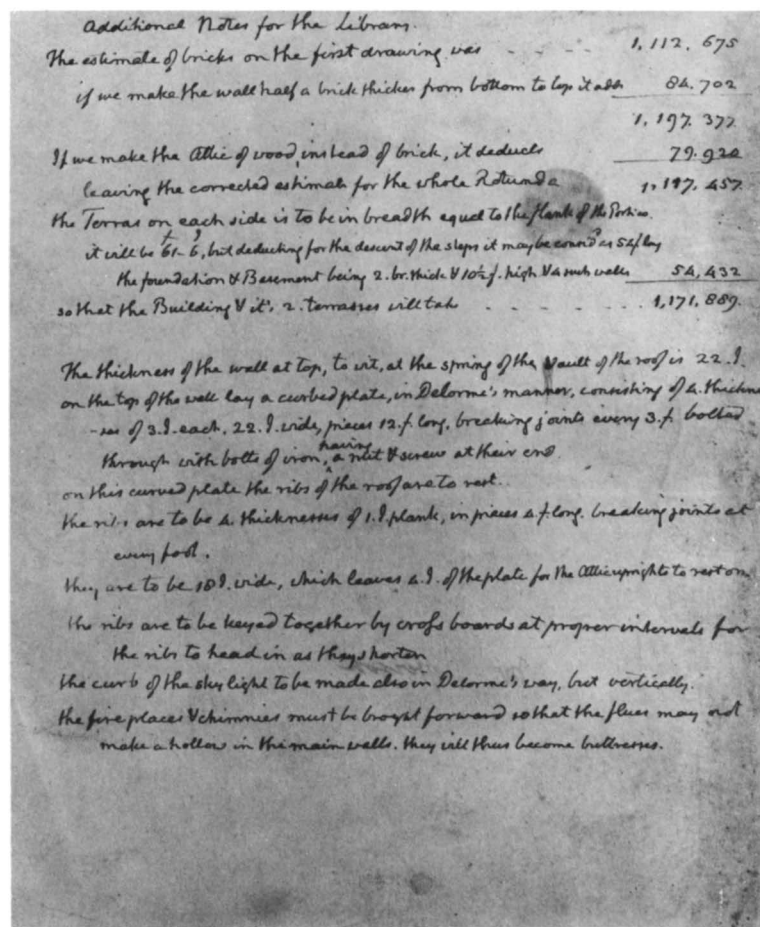 Additional Notes for the Library.
the estimate of bricks on the first drawing was - - - - 1,112,675
if we make the wall half a brick thicker from bottom to top it adds 84,702
1,197,377
If we make the Attic of wood, instead of brick, it deducts 79,920
leaving the corrected estimate for the whole Rotunda 1,117,457
the Terras on each side is to be in breadth equal to the flank of the Portico.
it will be but deducting for the descent of the steps it may be consid^d as 54 f long
the foundation & Basement being 2. br. thick & 10½ f. high & 4 such walls 54,432
so that the Building & it's 2. terrasses will take - - - - - 1,171,889.
The thickness of the wall at top, to wit, at the spring of the vault of the roof is 22. I.
on the top of the wall lay a curbed plate, in Delorme's manner, consisting of 4. thickne
-ses of 3. I. each. 22. I. wide, pieces 12. f. long. breaking joints every 3. f. bolted
through with bolts of iron, having a nut & screw at their end
on this curved plate the ribs of the roof are to rest.
the ribs are to be 4. thicknesses of 1. I. plank, in pieces 4. f. long. breaking joints at
every foot.
they are to be 18 I. wide, which leaves 4. I. of the plate for the Attic uprights to rest on
the ribs are to be keyed together by cross boards at proper intervals for
the ribs to head in as they shorten
the curb of the sky light to be made also in Delorme's way, but vertically.
the fire places & chimnies must be brought forward so that the flues may not
make a hollow in the main walls. they will thus become buttresses.